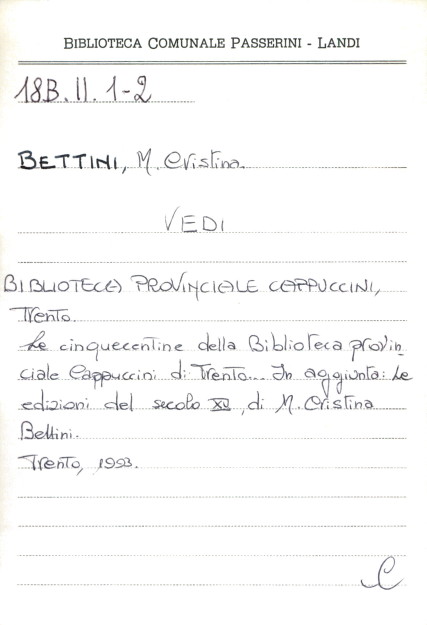 BIBLIOTECA COMUNALE PASSERINI - LANDI
18B.II.1-2
BETTINI, M. Cristina.
VEDI
BIBLIOTECA PROVINCIALE CAPPUCCINI,
Trento.
Le cinquecentine della Biblioteca provin
ciale Cappuccini di Trento... In aggiunta: Le
edizioni del secolo XV, di M. Cristina
Bettini.
Trento, 1993.
C